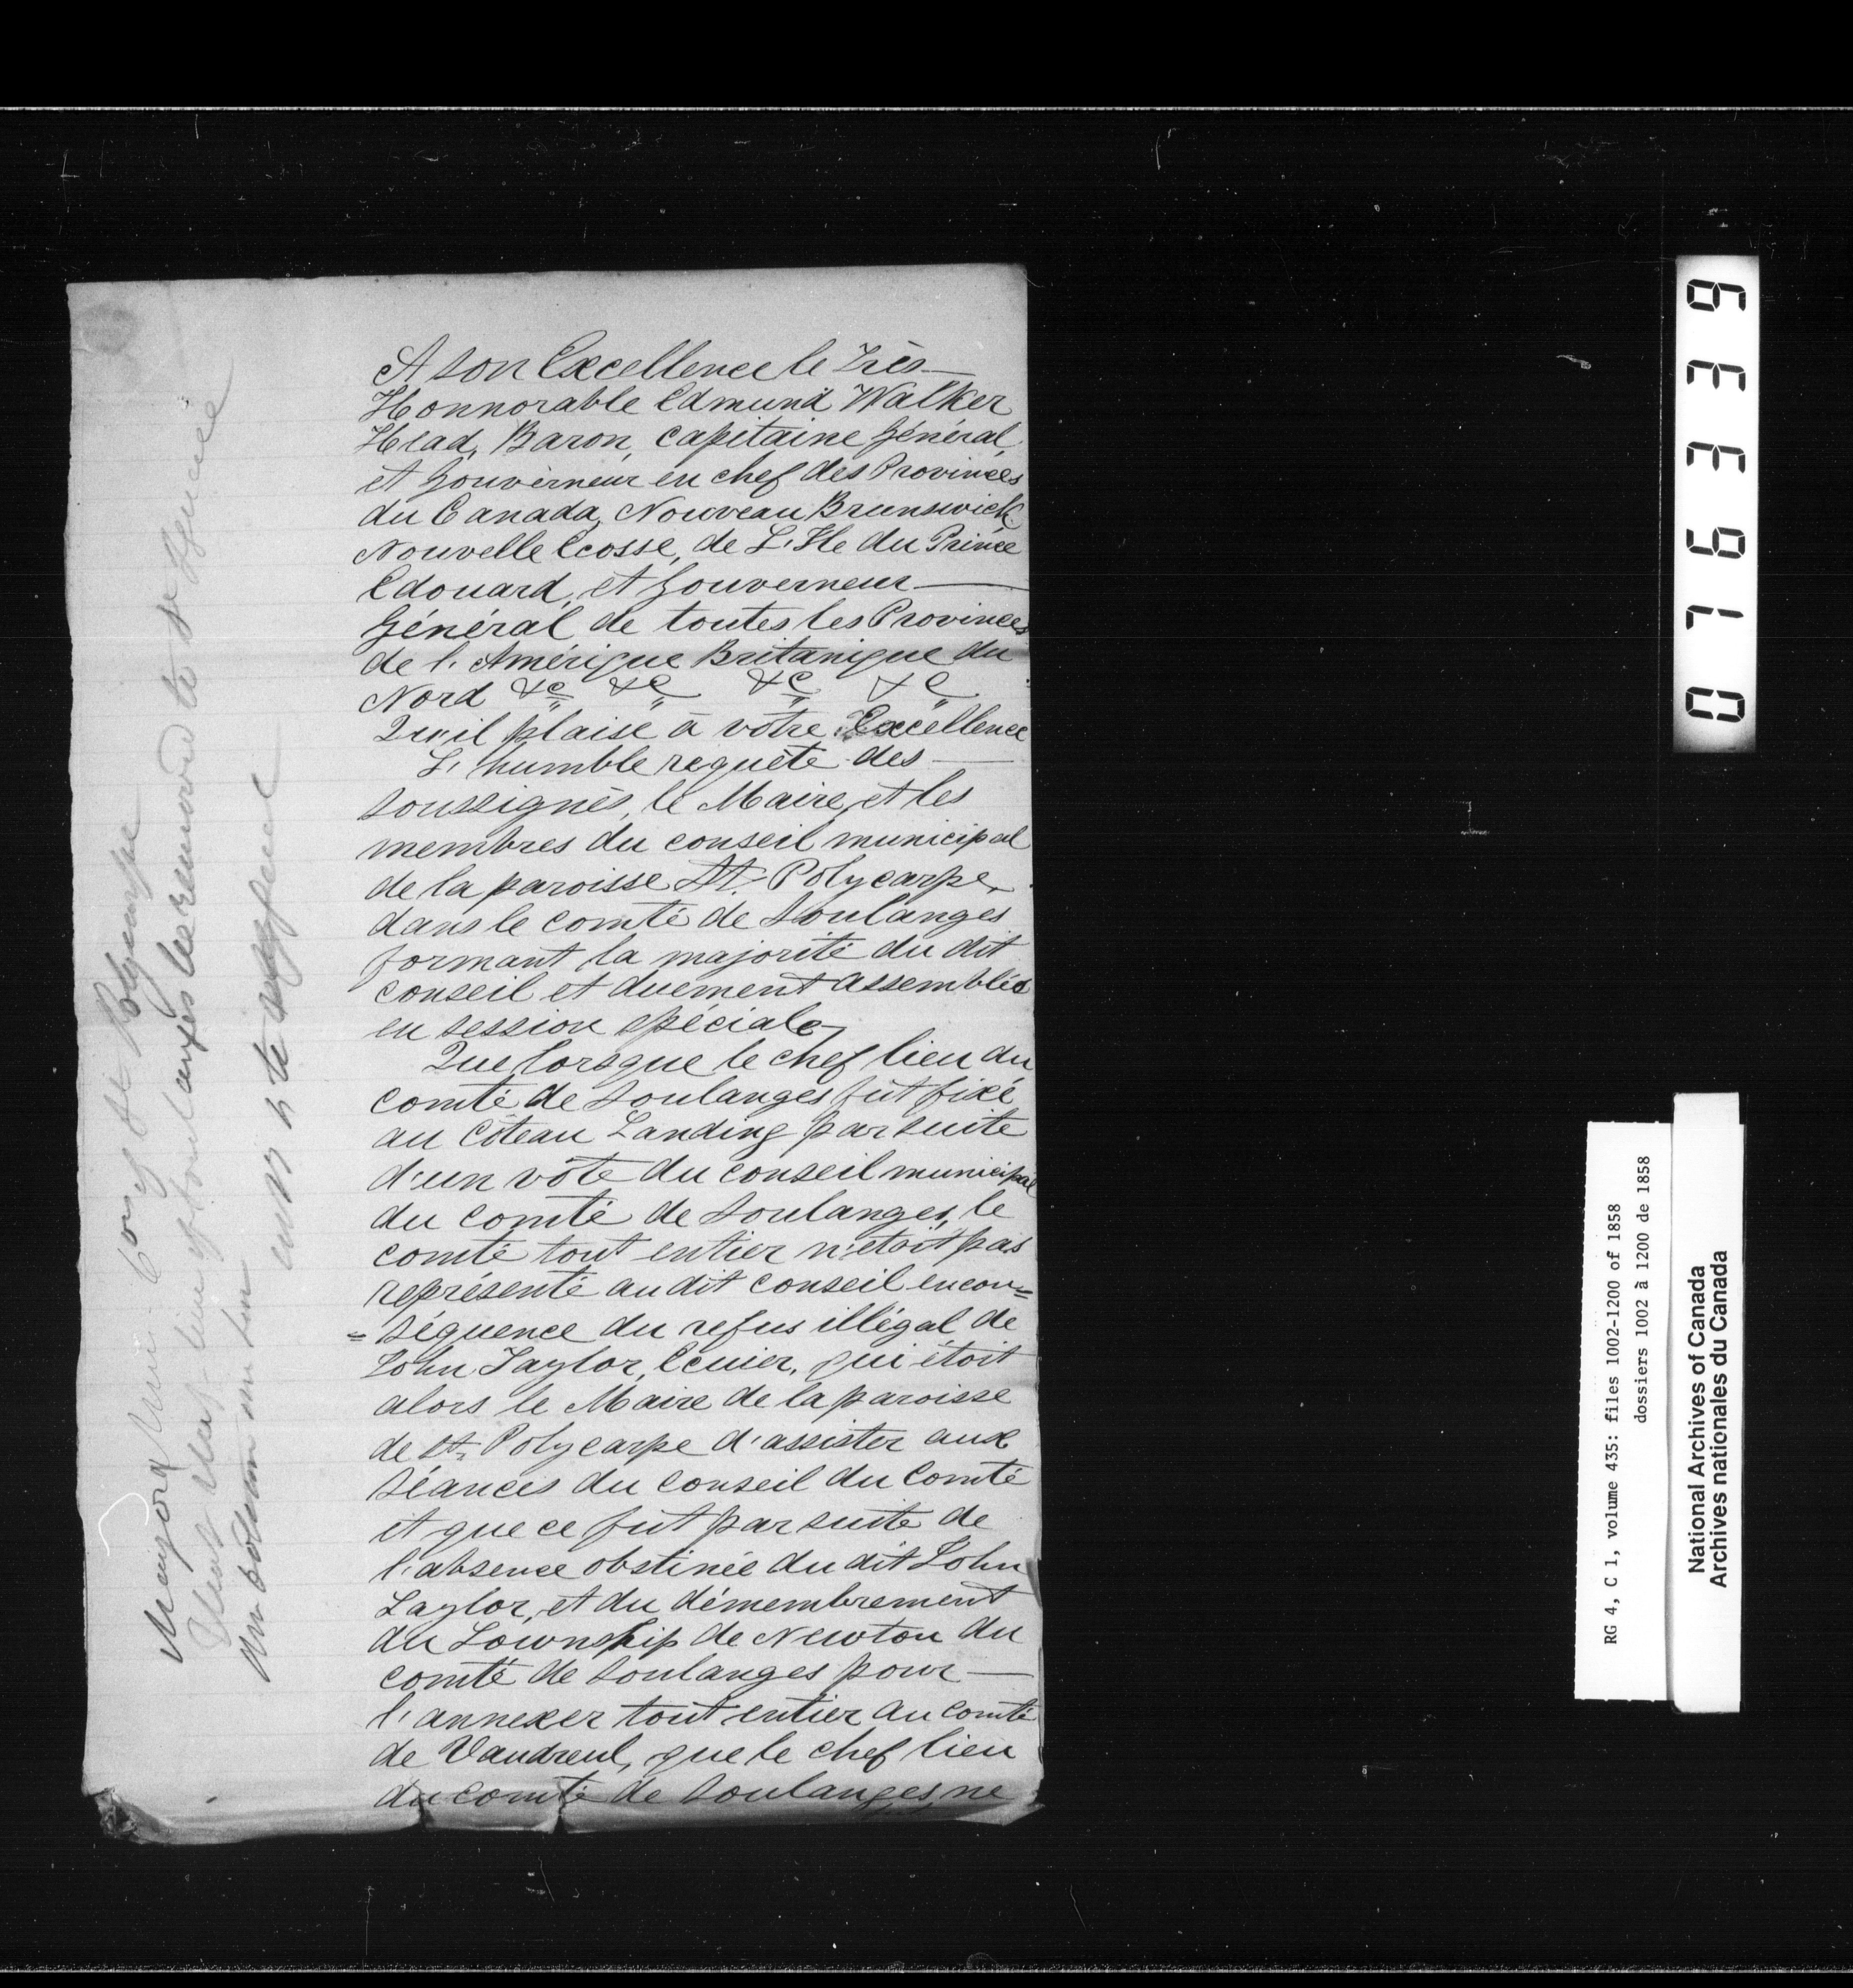 A son Excellence le Très
Honnorable Edmund Walker
Head, Baron, Capitaine Général
et Gouverneur en chef des Provinces
du Canada, Nouveau Brunswick
Nouvelle Ecosse, de L'Ile du Prince
Edouard, et Gouverneur
Général de toutes les Provinces
de l'Amérique Britanique du
Nord &c &c &c &c
Qu'il plaise à votre Excellence
L'humble requête des
soussignés, le Maire, et les
membres du conseil municipal
de la paroisse St. Polycarpe,
dans le comté de Soulanges
formant la majorité du dit
conseil et duement assemblés
en session spéciale,
Que lorsque le chef lieu du
comté de Soulanges fût fixé
au Côteau Landing par suite
d'un vôte du conseil municipal
du comté de Soulanges, le
comté tout entier n'étoit pas
représenté au dit conseil en con=
=séquence du refus illégal de
John Taylor, Ecuier, qui étoit
alors le Maire de la paroisse
de St. Polycarpe d'assister aux
séances du conseil du Comté
et que ce fut par suite de
l'absence obstinée du dit John
Taylor, et du démembrement
du Township de Newton du
comté de Soulanges pour
l'annexer tout entier au comté
de Vaudreul, que le chef lieu
du comté de Soulanges ne
Mayor Mun: St Polycarpe
Soulanges be removed to St Ignace
076339
RG 4, C 1, volume 435: files 1002-1200 of 1858
dossiers 1002 à 1200 de 1858
National Archives of Canada
Archives nationales du Canada